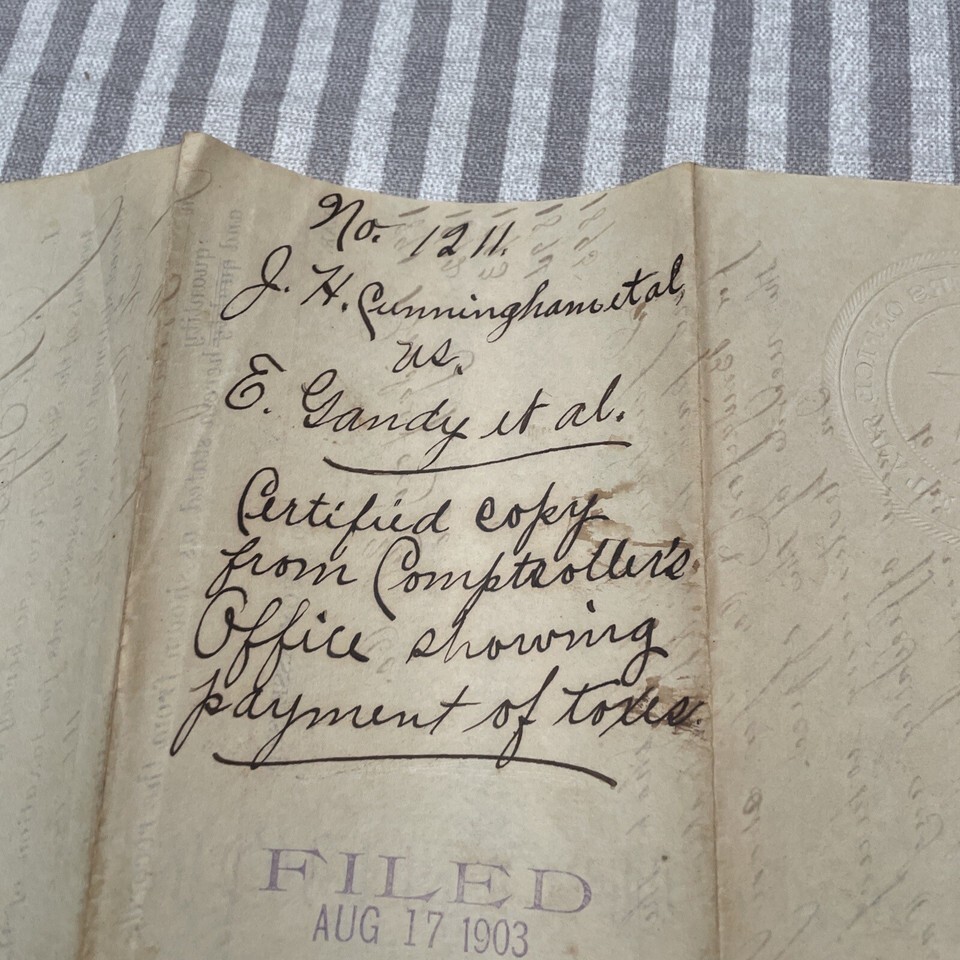 No. 1211.
J. H. Cunningham et al,
vs.
E. Gandy et al.
Certified copy
from Comptroller's
Office showing
payment of taxes.
FILED
AUG 17 1903